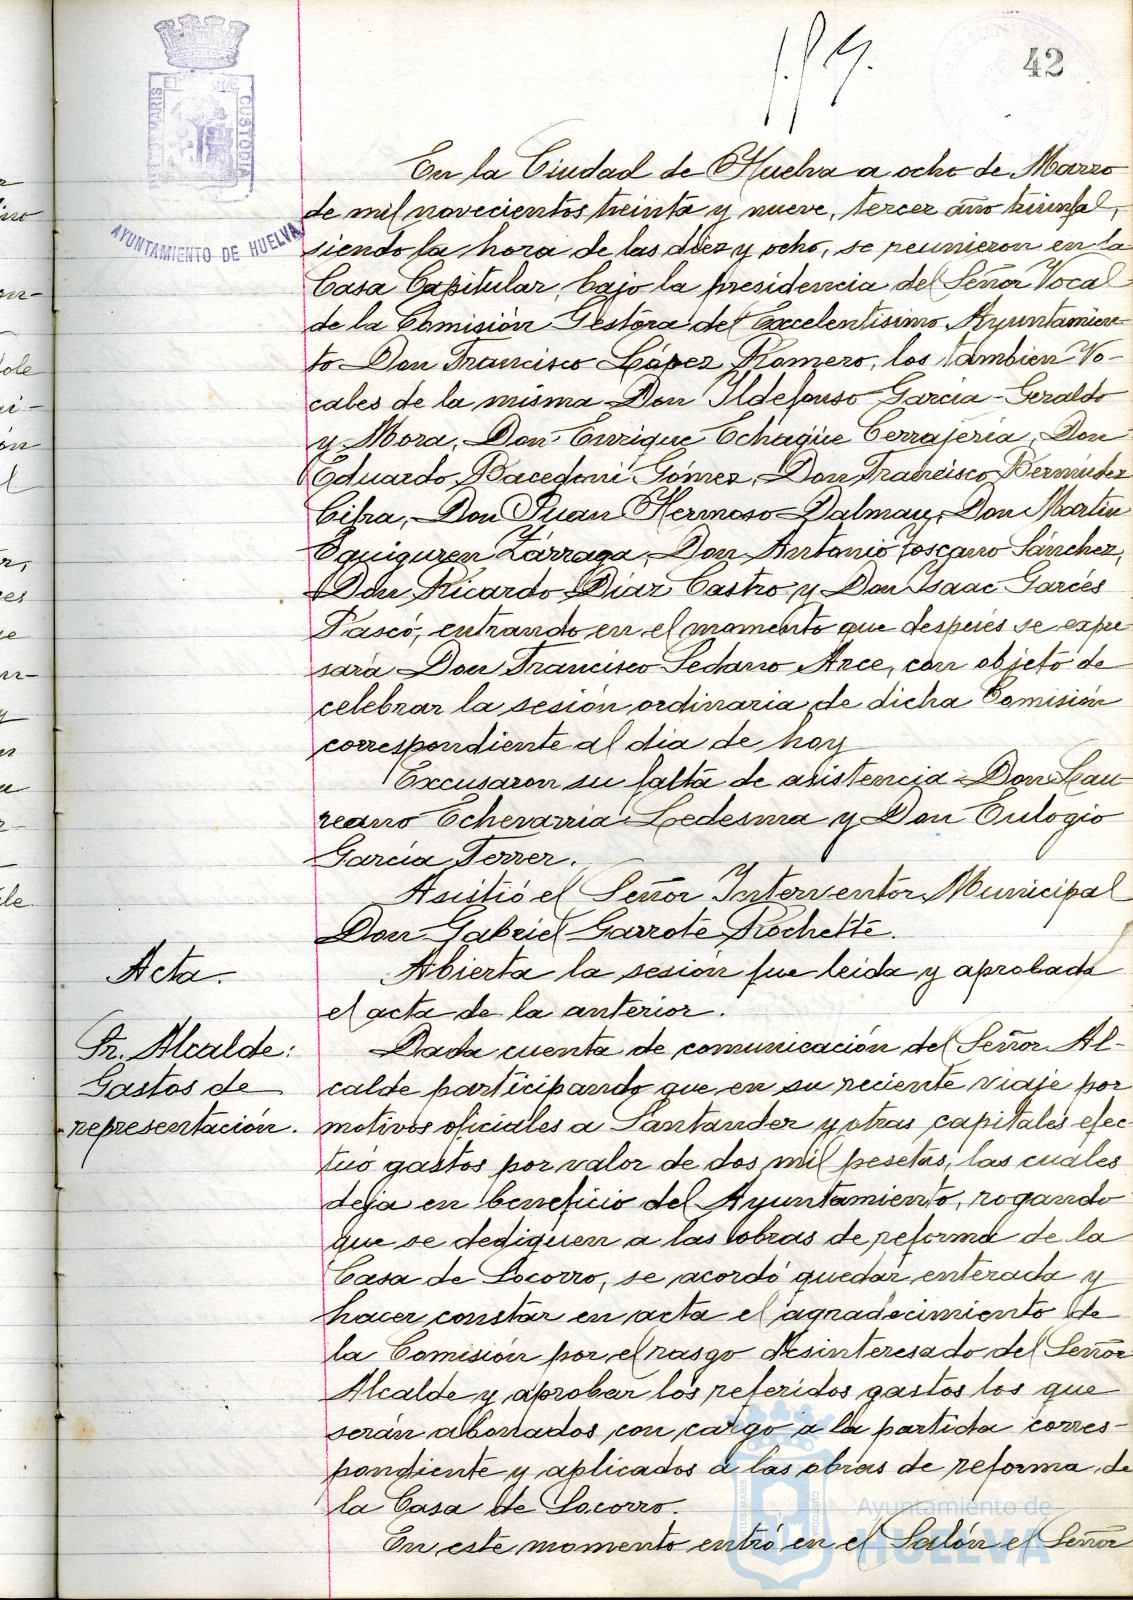 42
PORTUS MARIS ET TERRE CUSTODIA
AYUNTAMIENTO DE HUELVA
En la Ciudad de Huelva a ocho de Marzo
de mil novecientos treinta y nueve, tercer año triunfal,
siendo la hora de las diez y ocho, se reunieron en la
Casa Capitular, bajo la presidencia del Señor Vocal
de la Comisión Gestora del Excelentisimo Ayuntamien-
to Don Francisco López Romero, los tambien Vo-
cales de la misma Don Ildefonso Garcia-Geraldo
y Mora, Don Enrique Echagüe Cerrajeria, Don
Eduardo Bacedoni Gómez, Don Francisco Bermúdez
Cifra, Don Juan Hermoso Dalmau, Don Martin
Eguiguren Zárraga, Don Antonio Toscano Sánchez,
Don Ricardo Diaz Castro y Don Isaac Garcés
Pascó, entrando en el momento que después se expre
sará Don Francisco Sedano Arce, con objeto de
celebrar la sesión ordinaria de dicha Comisión
correspondiente al dia de hoy
Excusaron su falta de asistencia Don Lau-
reano Echevarria Ledesma y Don Eulogio
Garcia Ferrer.
Asistió el Señor Interventor Municipal
Don Gabriel Garrote Rochette.
Acta.
Abierta la sesión fue leida y aprobada
el acta de la anterior.
Sr. Alcalde:
Gastos de
representación.
Dada cuenta de comunicación del Señor Al-
calde participando que en su reciente viaje por
motivos oficiales a Santander y otras capitales efec
tuó gastos por valor de dos mil pesetas, las cuales
deja en beneficio del Ayuntamiento, rogando
que se dediquen a las obras de reforma de la
Casa de Socorro, se acordó quedar enterada y
hacer constar en acta el agradecimiento de
la Comisión por el rasgo desinteresado del Señor
Alcalde y aprobar los referidos gastos los que
serán abonados con cargo a la partida corres-
pondiente y aplicados a las obras de reforma de
la Casa de Socorro.
En este momento entró en el Salón el Señor
Ayuntamiento de
HUELVA